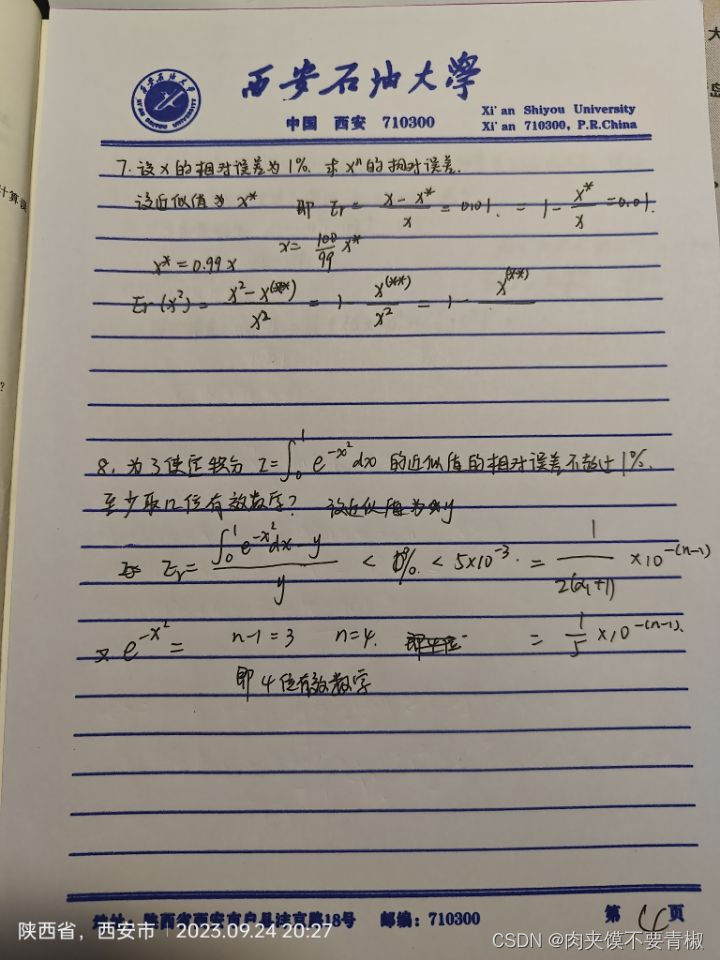 西安石油大學
中国 西安 710300
Xi'an Shiyou University
Xi'an 710300, P.R.China
7. 设 x 的相对误差为1%. 求 xⁿ 的相对误差.
设近似值为 x* 即 Er = (x - x*)/x = 0.01. = 1 - x*/x = 0.01.
x* = 0.99x x = 100/99 x*
Er(x²) = (x² - x^(**))/x² = 1 - x^(**)/x² = 1 - x^(**)
8. 为了使定积分 I = ∫₀¹ e^(-x²) dx 的近似值的相对误差不超过1%.
至少取几位有效数字? 设近似值为 y
Er = (∫₀¹ e^(-x²) dx - y)/y < 1%. < 5×10⁻³. = 1/(2(α₁+1)) ×10^(-(n-1))
又 e^(-x²) = n-1=3 n=4. 即4位 = 1/5 ×10^(-(n-1)).
即4位有效数字
地址: 陕西省西安市 18号 邮编: 710300 第 4 页
陕西省，西安市 2023.09.24 20:27
CSDN @肉夹馍不要青椒